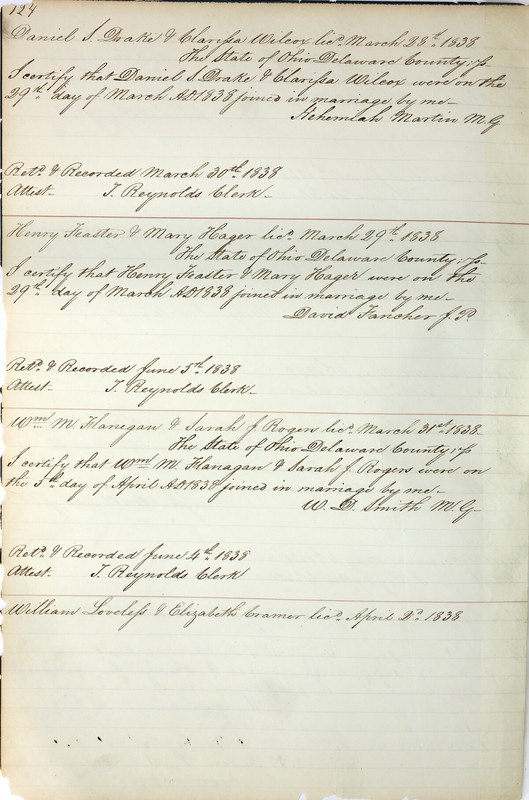 124
Daniel S. Drake & Clarissa Wilcox licd. March 28th. 1838
The State of Ohio Delaware County: ss
I certify that Daniel S Drake & Clarissa Wilcox were on the
29th. day of March AD1838 joined in marriage by me-
Nehemiah Martin M G
Retd. & Recorded March 30th. 1838
Attest- T. Reynolds Clerk-
Henry Feaster & Mary Hager licd. March 29th. 1838
The State of Ohio Delaware County: ss
I certify that Henry Feaster & Mary Hager were on the
29th. day of March AD1838 joined in marriage by me-
David Fancher J. P.
Retd. & Recorded June 5th. 1838
Attest- T. Reynolds Clerk-
Wm. M. Flanegan & Sarah J. Rogers licd. March 31st. 1838-
The State of Ohio Delaware County ss
I certify that Wm. M. Flanagan & Sarah J. Rogers were on
the 5th. day of April AD1838 joined in marriage by me-
W. D. Smith M. G-
Retd. & Recorded June 4th. 1838
Attest. T. Reynolds Clerk
William Loveless & Elizabeth Cramer licd. April 2d. 1838